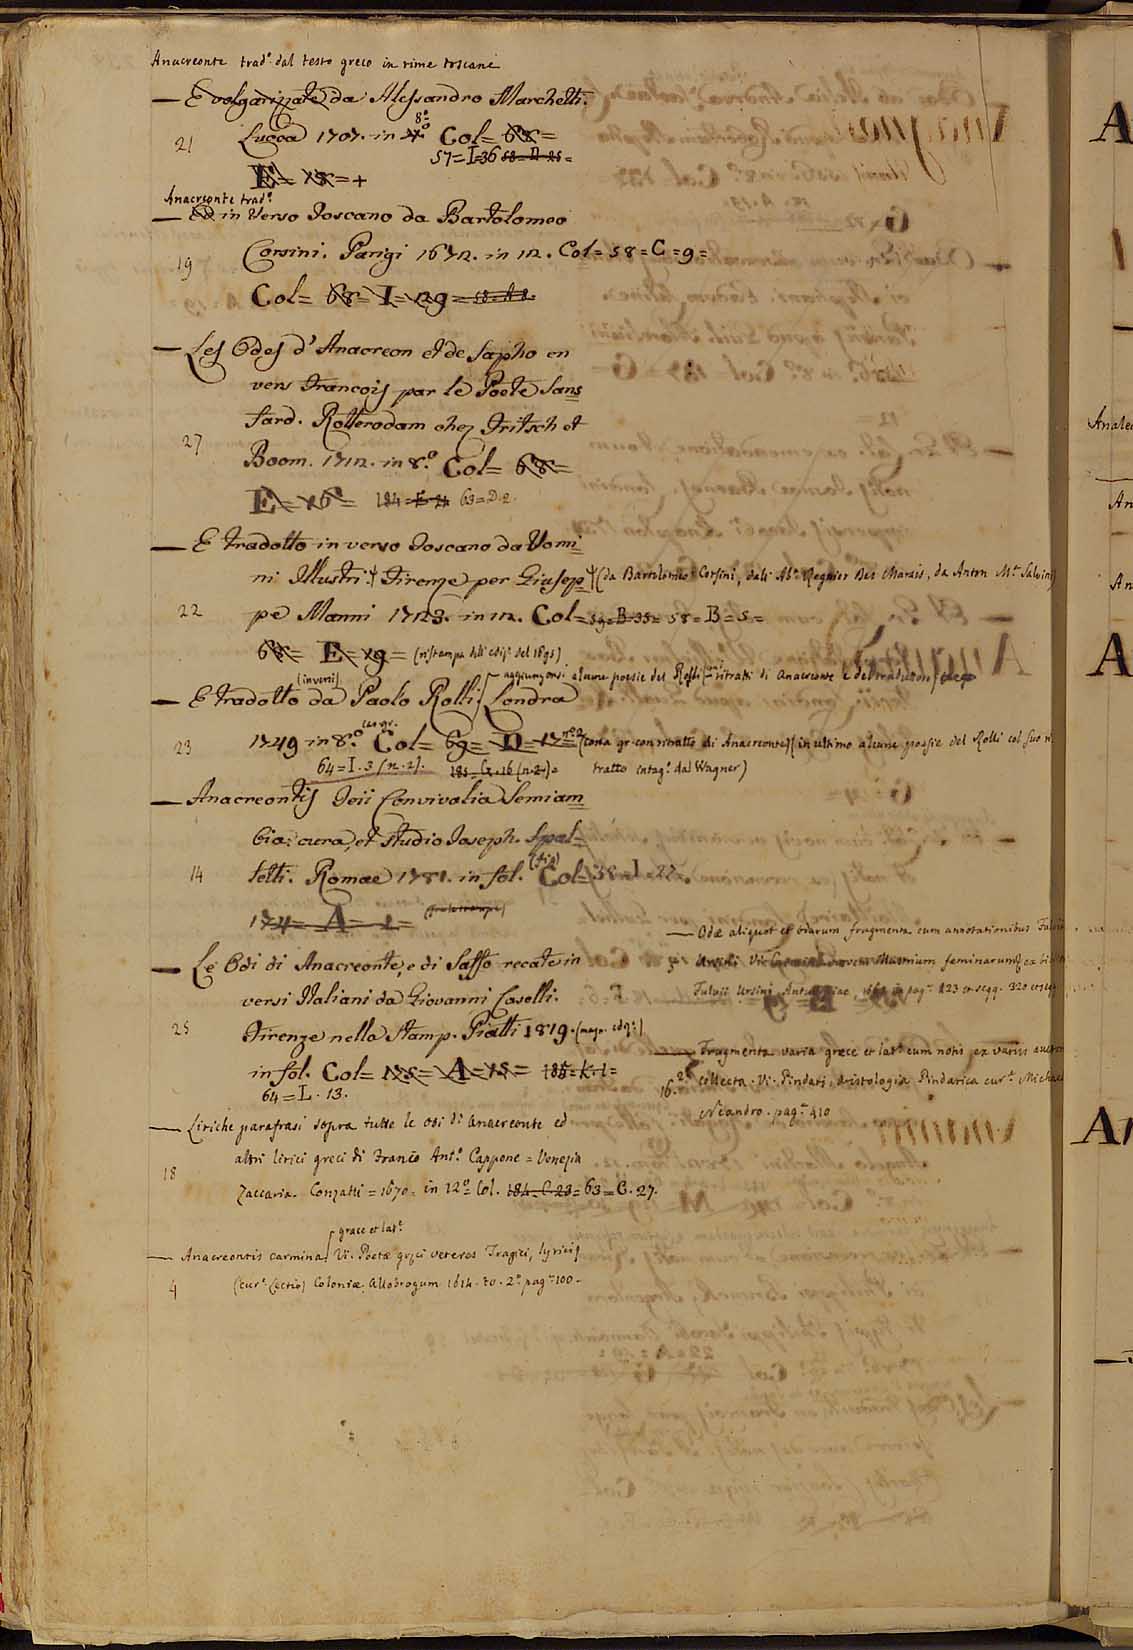 Anacreonte trad.º dal testo greco in rime toscane
— E volgarizzate da Alessandro Marchetti.
8.º
21 Lucca 1707. in 4.º Col= 68=
57=I=36 58=D=25=
E= 18=+
Anacreonte trad.º
— Ed in Verso Toscano da Bartolomeo
19 Corsini. Parigi 1672. in 12. Col=58=C=9=
Col= 68=I=29=
— Les Odes d'Anacreon et de Sapho en
vers François par le Poete Sans
fard. Rotterodam chez Fritsch et
27 Boom. 1712. in 8.º Col= 68=
E=16= 184=E=21 63=D.2.
— E tradotto in verso Toscano da Uomi=
ni Illustri. Firenze per Giusep= (da Bartolomeo Corsini, dall' Ab.e Regnier Des Marais, da Anton M.a Salvini)
22 pe Manni 1723. in 12. Col=59=B=35= 58=B=5=
68= E=19= (ristampa dell' ediz.e del 1695)
(in versi) aggiungonsi alcune poesie del Rolli
— E tradotto da Paolo Rolli Londra
can gr.
23 1749 in 8.º Col= 69= D=17= (carta gr. con ritratto di Anacreonte) (in ultimo alcune poesie del Rolli col suo ri
64=I.3 (n.2). 185=G=16 (n.2)= tratto intag.º da Wagner)
— Anacreontis Teii Convivalia Semiam=
bia: cura, et studio Joseph. Spal=
14 letti. Romae 1781. in fol. Col=38=I.27.
174= A=1=
— Le Odi di Anacreonte, e di Saffo recate in
versi Italiani da Giovanni Caselli.
25 Firenze nella Stamp. Piatti 1819. (magn. ediz.)
in fol. Col= A=15= 185=K.1=
64=L.13.
— Liriche parafrasi sopra tutte le odi di Anacreonte ed
altri lirici greci di Franc.o Ant.º Cappone = Venezia
18 Zaccaria. Conzatti = 1670. in 12.º Col. 184=C.23= 63=C.27.
græce et lat.e
— Anacreontis carmina Vi. Poetæ græci veteres Tragici, lyrici
4 (cur.e Lectio) Coloniæ Allobrogum 1614. to. 2.º pag.e 100.
— Odæ aliquot et odarum fragmenta cum annotationibus Fulvii
Ursini. Vi. Carmina novem illustrium feminarum ex bibl.
Fulvii Ursini. Antuerpiae, 1568 in pag.e 123 et seqq. 320 et seq.
— Fragmenta varia græce et lat.e cum notis ex variis auctor
16. 2º collecta. Vi. Pindari, Aristologia Pindarica cur.e Michael
Neandro. pag.e 410